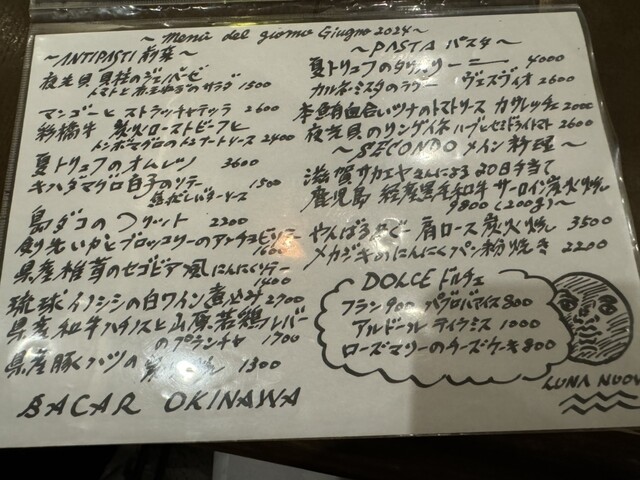 ~ Menù del giorno Giugno 2024 ~
~ANTIPASTI 前菜
夜光貝 貝柱のジェノベーゼ
トマトと水玉ねぎのサラダ 1500
マンゴーと ストラッチャテッラ 2600
炭火ローストビーフと
トンボマグロのトンナートソース 2400
夏トリュフのオムレツ 3600
キハダマグロ白子のソテー
1500
島ダコのフリット 2200
剣先いかとブロッコリーのアンチョビソテー
1600
県産椎茸のセゴビア風にんにくソテー
1400
琉球イノシシの白ワイン煮込み 2700
県産和牛ハチノスと山原若鶏レバー
のプランチャ 1700
県産豚ハツの 1300
BACAR OKINAWA
~PASTA パスタ~
夏トリュフのタヤリン 4000
カルネミスタのラグー ヴェスヴィオ 2600
本鮪血合いツナのトマトソース カサレッチェ 2000
夜光貝のリングイネ ハーブとセミドライトマト 2600
~ SECONDO メイン料理 ~
滋賀サカエヤさんによる 20日手当て
鹿児島 経産黒毛和牛 サーロイン炭火焼
9800 (200g)~
やんばるあぐー 肩ロース炭火焼 3500
メカジキのにんにくパン粉焼き 2200
DOLCE ドルチェ
フラン 900 パブロバマイス 800
アルドーレ ティラミス 1000
ローズマリーのチーズケーキ 800
LUNA NUOV